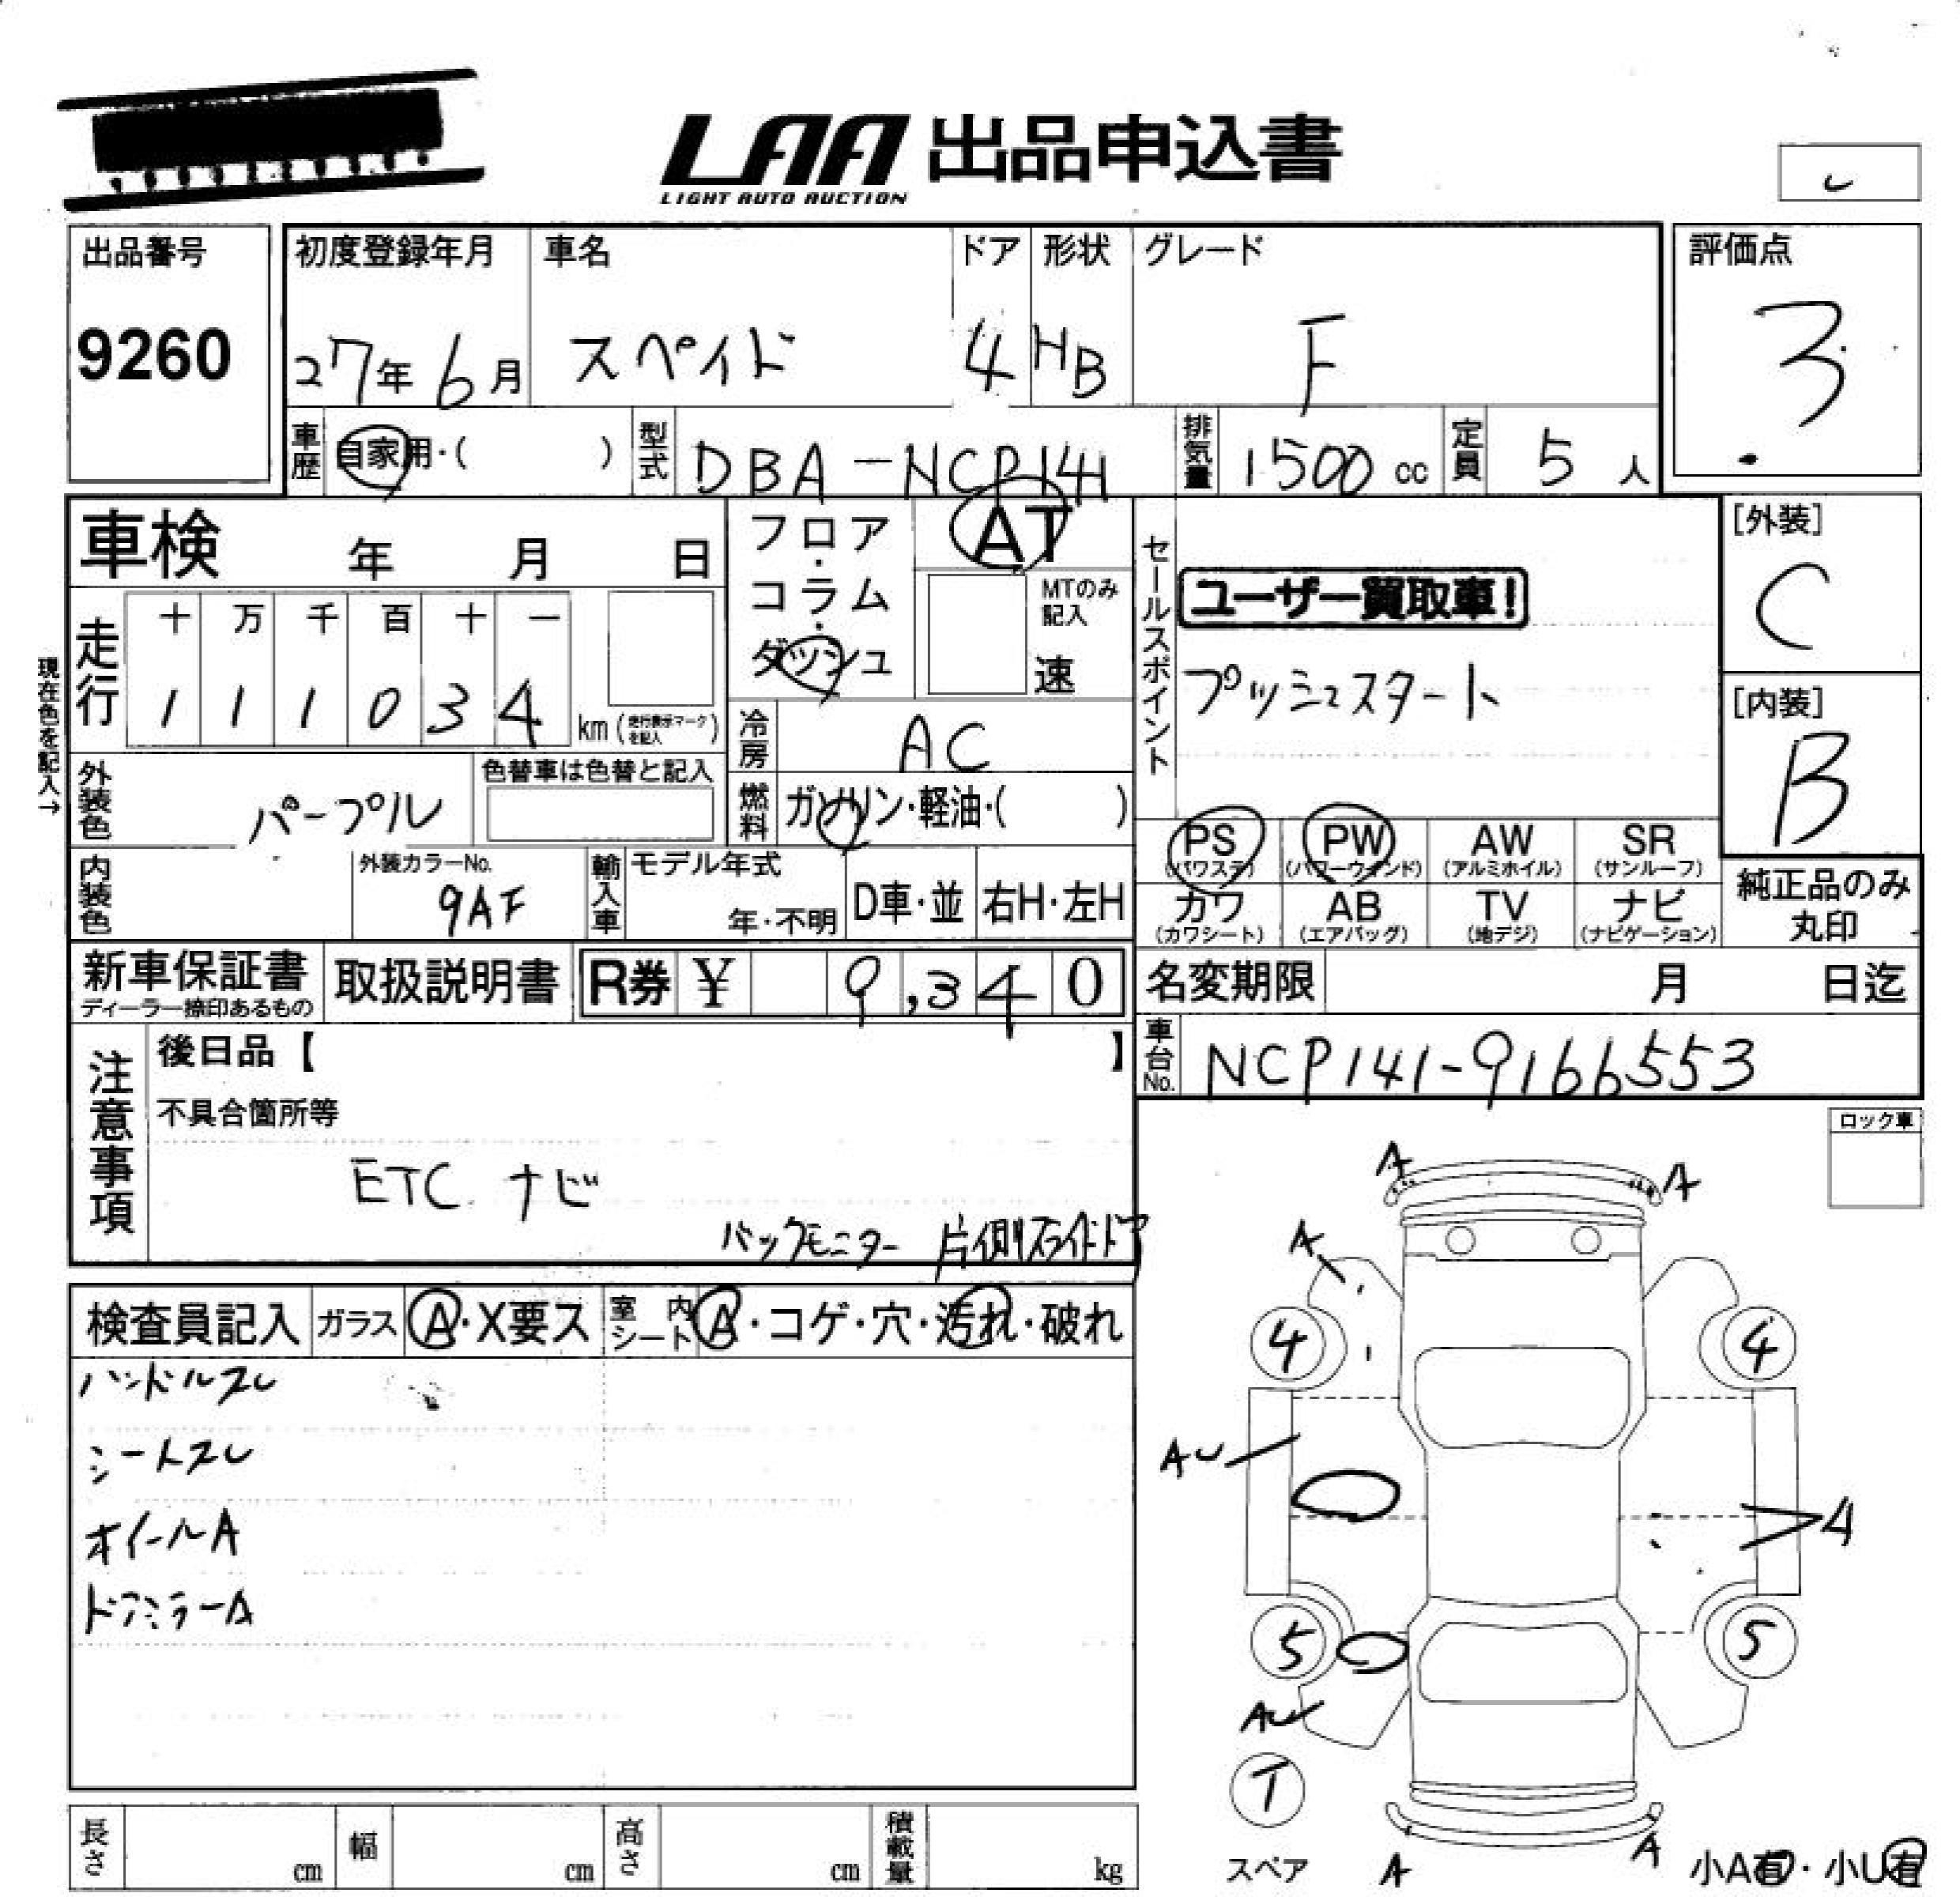 LAA 出品申込書
LIGHT AUTO AUCTION
出品番号
9260
初度登録年月 車名 ドア 形状 グレード
27年 6月 スペイド 4 HB F
評価点
3
車歴 自家用・( ) 型式 DBA-NCP141 排気量 1500 cc 定員 5 人
車検 年 月 日
フロア・コラム・ダッシュ
AT
MTのみ記入
速
セールスポイント
ユーザー買取車!
プッシュスタート
[外装]
C
[内装]
B
現在色を記入→
走行
十 万 千 百 十 一
1 1 1 0 3 4 km (走行表示マークを記入)
冷房 AC
外装色 パープル
色替車は色替と記入
燃料 ガソリン・軽油・( )
PS (パワステ) PW (パワーウインド) AW (アルミホイル) SR (サンルーフ)
カワ (カワシート) AB (エアバッグ) TV (地デジ) ナビ (ナビゲーション)
純正品のみ丸印
内装色
外装カラーNo.
9AF
輸入車 モデル年式
年・不明 D車・並 右H・左H
新車保証書
ディーラー捺印あるもの
取扱説明書
R券 ¥ 9,340
名変期限 月 日迄
車台No. NCP141-9166553
注意事項
後日品【 】
不具合箇所等
ETC ナビ
バックモニター 片側スライドドア
ロック車
検査員記入 ガラス A・X要ス 室内シート A・コゲ・穴・汚れ・破れ
ハンドルスレ
シートスレ
ホイールA
ドアミラーA
A
A
A
4
4
AU
A
5
5
AU
T
スペア
A
A
小A有・小U有
長さ cm 幅 cm 高さ cm 積載量 kg